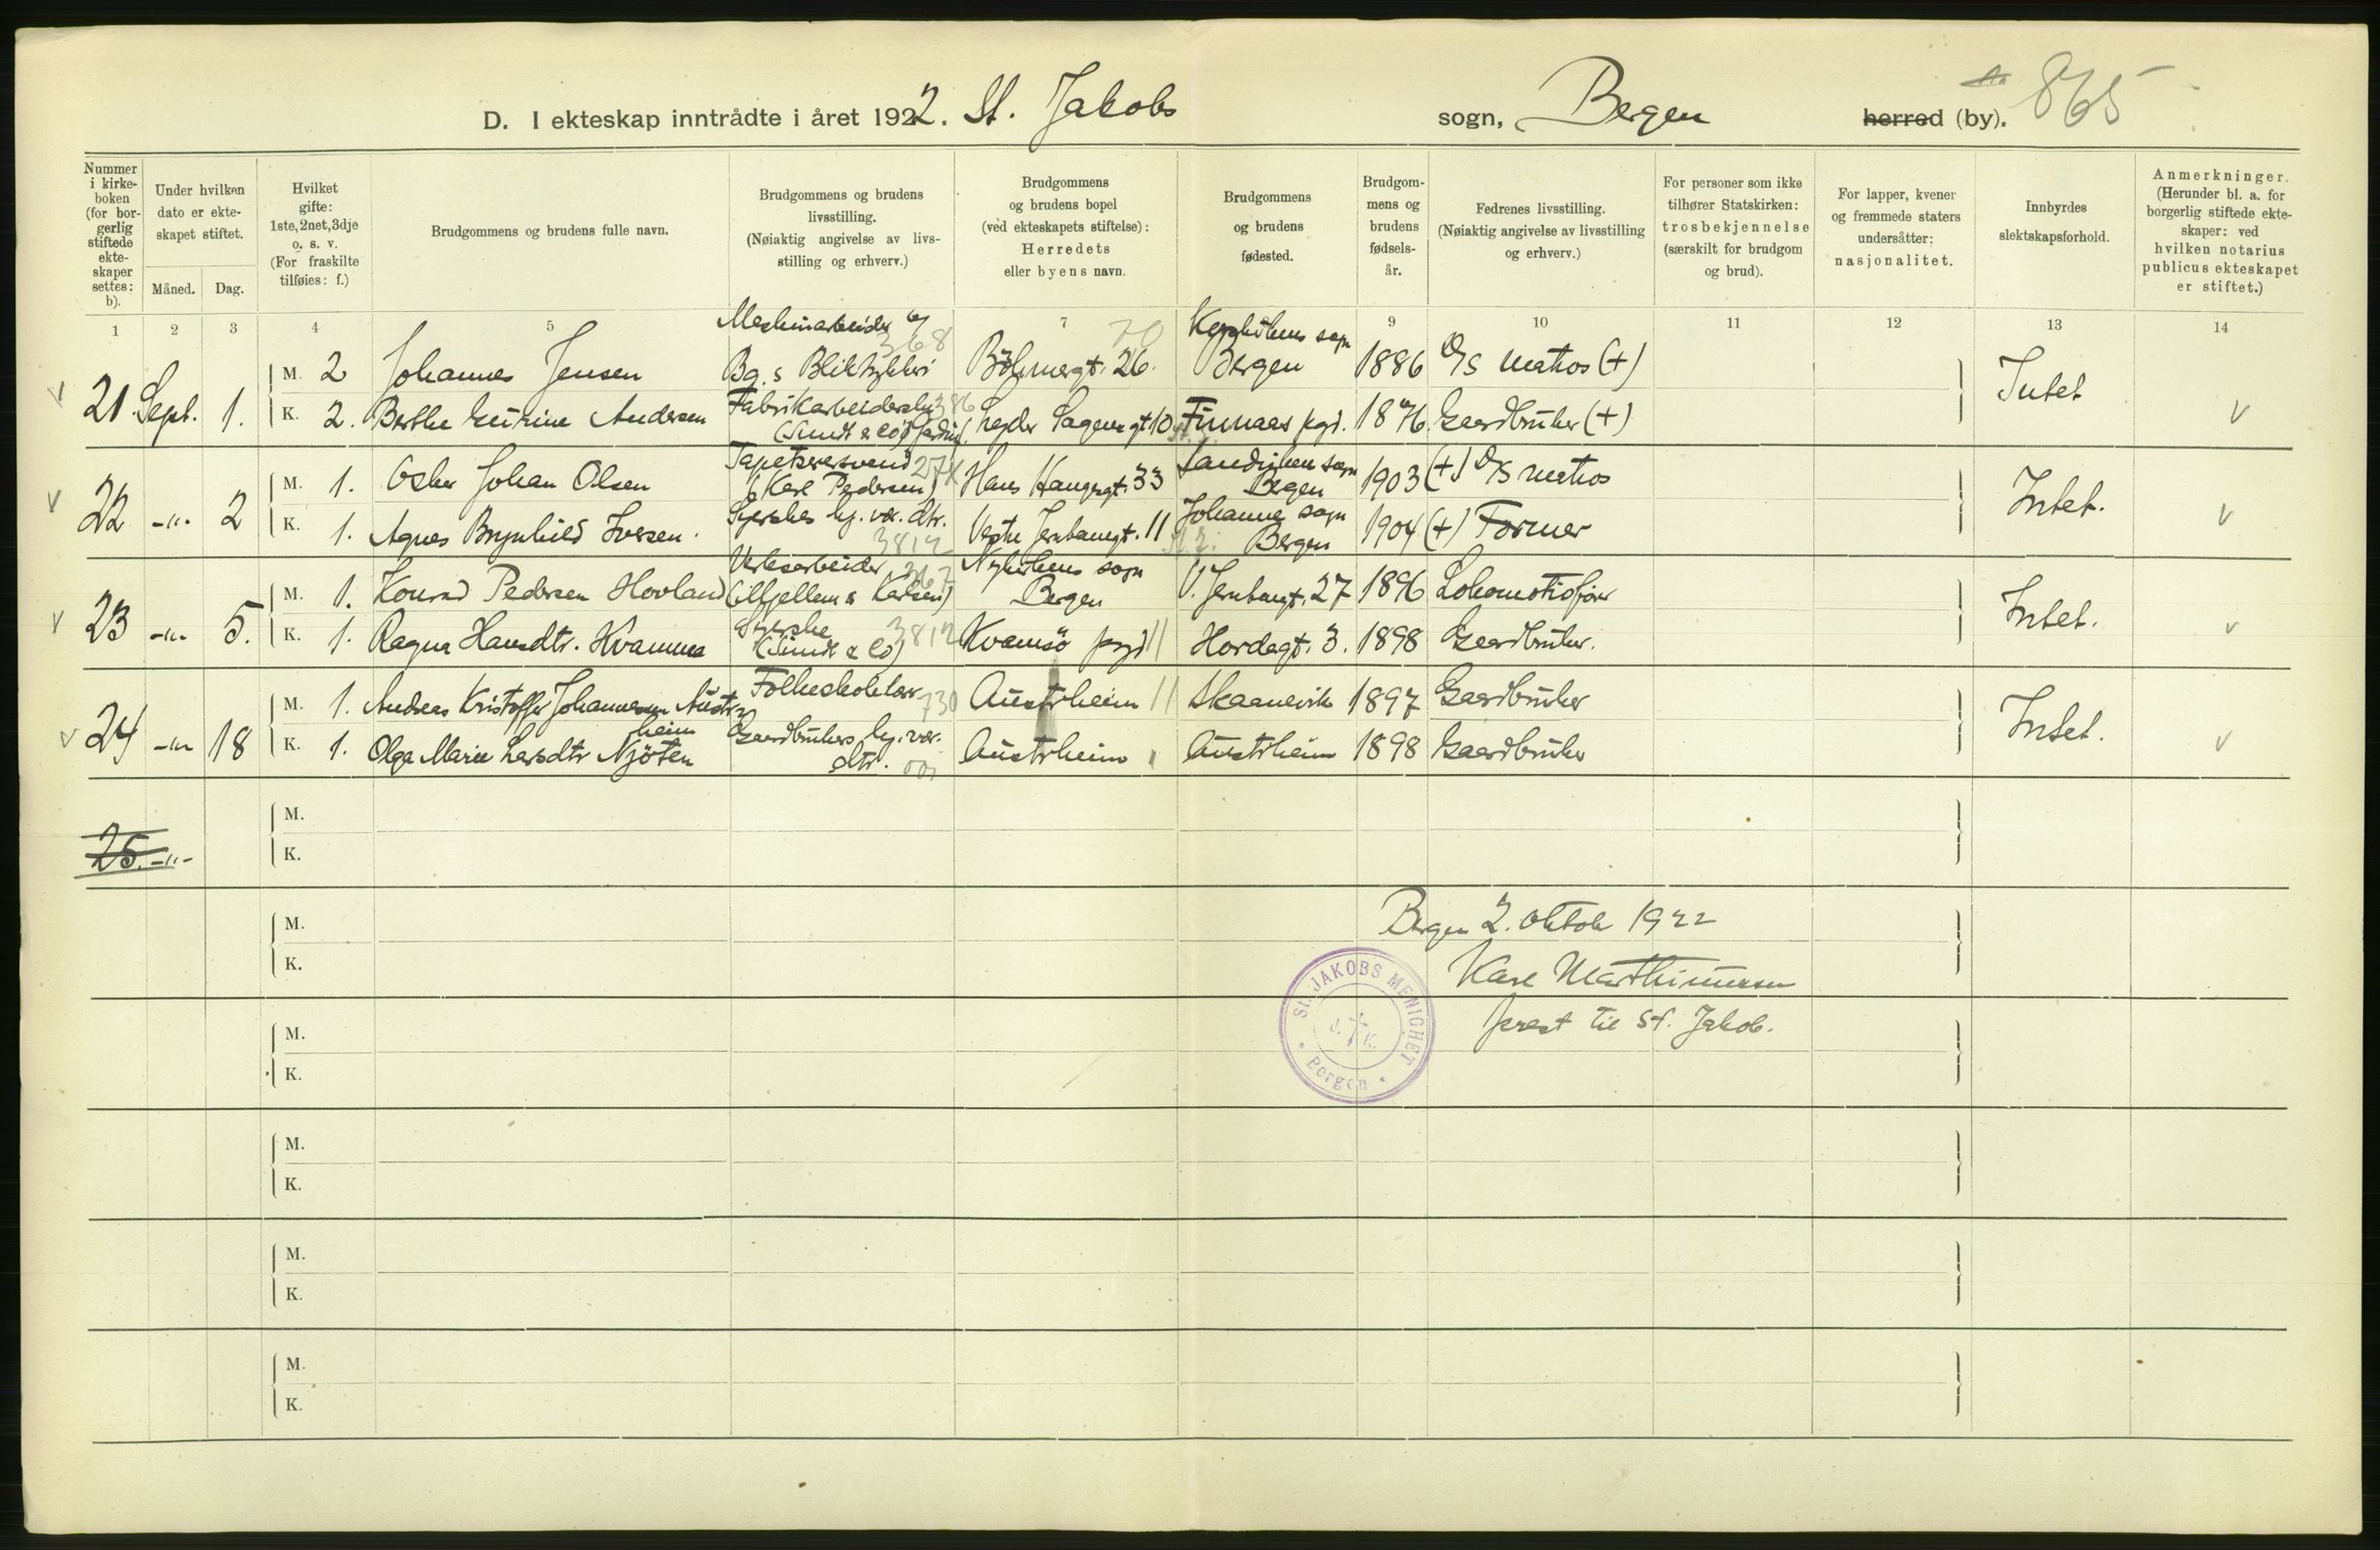 D. I ekteskap inntrådte i året 1922. St. Jakobs sogn, Bergen herred (by). 865
Nummer i kirkeboken (for borgerlig stiftede ekteskaper settes: b).
Under hvilken dato er ekteskapet stiftet.
Måned. Dag.
Hvilket gifte: 1ste, 2net, 3dje o. s. v. (For fraskilte tilføies: f.)
Brudgommens og brudens fulle navn.
Brudgommens og brudens livsstilling. (Nøiaktig angivelse av livsstilling og erhverv.)
Brudgommens og brudens bopel (ved ekteskapets stiftelse): Herredets eller byens navn.
Brudgommens og brudens fødested.
Brudgommens og brudens fødselsår.
Fedrenes livsstilling. (Nøiaktig angivelse av livsstilling og erhverv.)
For personer som ikke tilhører Statskirken: trosbekjennelse (særskilt for brudgom og brud).
For lapper, kvener og fremmede staters undersåtter: nasjonalitet.
Innbyrdes slektskapsforhold.
Anmerkninger. (Herunder bl. a. for borgerlig stiftede ekteskaper: ved hvilken notarius publicus ekteskapet er stiftet.)
1 2 3 4 5 7 9 10 11 12 13 14
21 Sept. 1. M. 2 Johannes Jensen Bergen 1886 matros (+) Intet
K. 2. Berthe Andersen Fabrikarbeiderske (Sundt & Co) Lyder Sagensgt 10 Finnaas pgd. 1876 Gaardbruker (+)
22 -"- 2 M. 1. Osker Johan Olsen Tapetserersvend (Karl Pedersen) Hans Haugesgt. 33 Sandviken sogn Bergen 1903 (+) matros Intet.
K. 1. Agnes Brynhild Iversen. Syerske hj. vær. dtr. 3812 Vestre Jernbanegt. 11 Johannes sogn Bergen 1904 (+) Former
23 -"- 5. M. 1. Konrad Pedersen Hovland Verksarbeider (Mjellem & Karlsen) Nykirkens sogn Bergen V. Jernbangt. 27 1896 Lokomotivfører Intet.
K. 1. Ragna Hansdtr. Kvamme Syerske (Sundt & Co) 3812 Kvamsö pgd Hordagt. 3. 1898 Gaardbruker.
24 -"- 18 M. 1. Andreas Kristoffer Johannessen Austrheim Folkeskolelær 730 Austrheim Skaanevik 1897 Gaardbruker Intet.
K. 1. Olga Marie Larsdtr Njöten Gaardbrukers hj. vær. dtr. Austrheim Austrheim 1898 Gaardbruker
25. -"- M.
K.
M.
Bergen 2. oktob 1922
K.
Karl Marthinussen
St. JAKOBS MENIGHET
J. K.
Bergen
M.
prest til St. Jakob.
K.
M.
K.
M.
K.
M.
K.